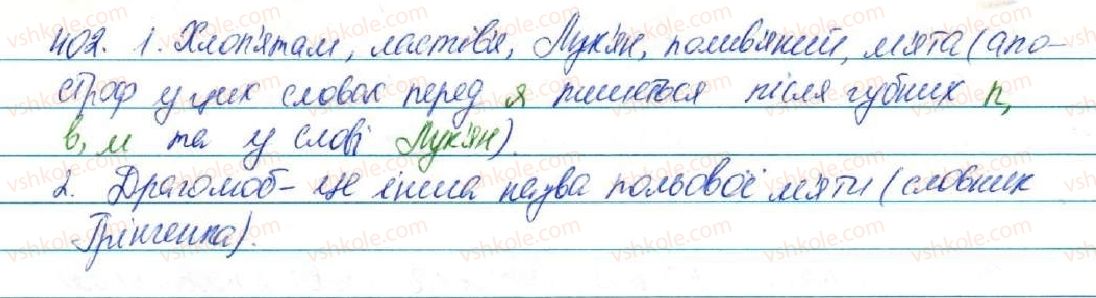 402. 1. Хлоп'ятам, ластів'я, Лук'ян, полив'яний, м'ята (апо-
строф у цих словах перед я пишеться після губних п,
в, м та у слові Лук'ян).
2. Драгомоб - це інша назва польової м'яти (словник
Грінченка).